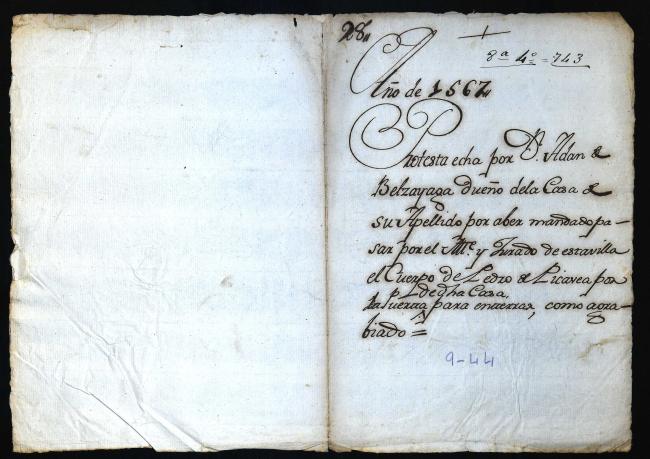 28
8ª 4º = 743
Año de 1567
Protesta echa por Dn. Adan de
Belzayaga dueño dela Casa de
su Apellido por aber mandado pa-
sar por el Alce. y Jurado de esta villa
el Cuerpo de Pedro de Picavea por
pl. de dha Casa,
la fuerza para enterrar, como agra-
biado =
9-44